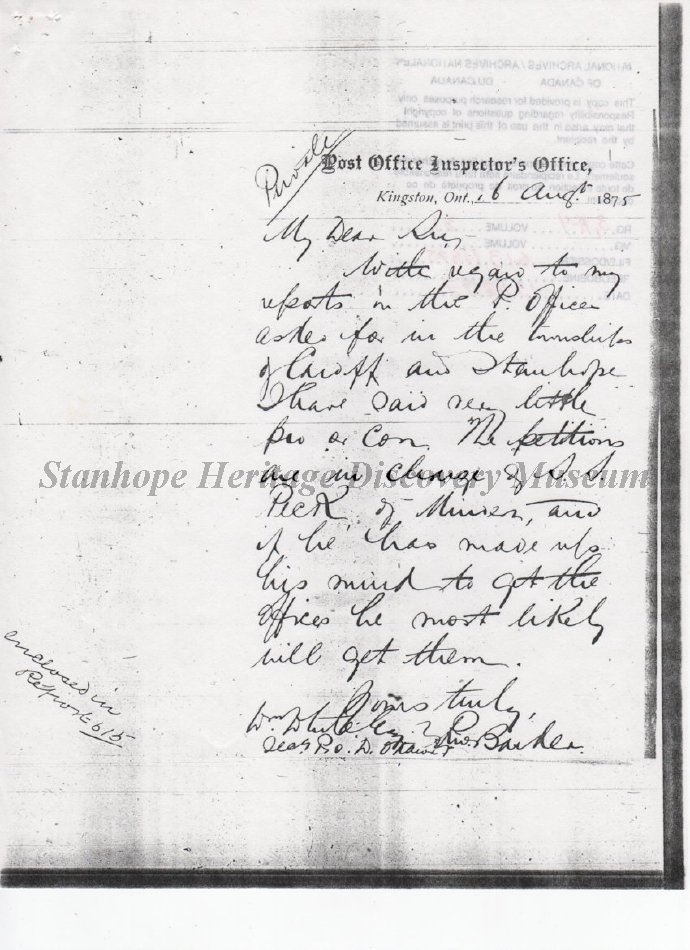 NATIONAL ARCHIVES / ARCHIVES NATIONALES
OF CANADA DU CANADA
This copy is provided for research purposes only
Responsibility regarding questions of copyright
that may arise in the use of this print is assumed
by the recipient.
RG VOLUME
VOLUME
DATE
Private
Post Office Inspector's Office,
Kingston, Ont., 16 Augt 1875
My Dear Sir,
With regard to my
reports in the P. Offices
asked for in the townships
of Cardiff and Stanhope
I have said very little
pro or con. The petitions
are in charge of S. S.
Peck of Minden, and
if he has made up
his mind to get the
offices he most likely
will get them.
Yours truly,
Wm White Esq
Secy P.O. D. Ottawa
Barker
enclosed in
Report 615
Stanhope Heritage Discovery Museum